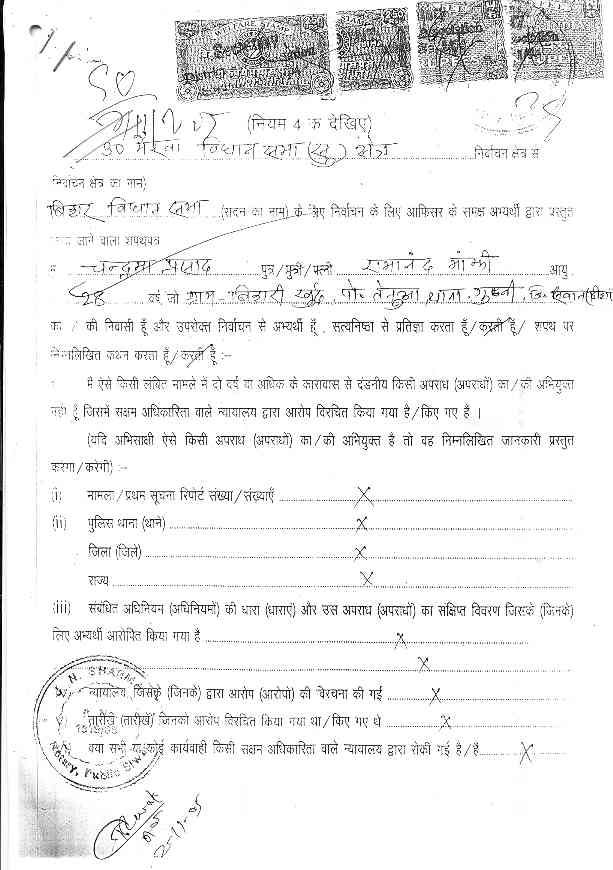 WELFARE STAMP
(नियम 4 क देखिए)
विधान सभा क्षेत्र निर्वाचन क्षेत्र से
निर्वाचन क्षेत्र का नाम)
बिहार विधान सभा (सदन का नाम) के लिए निर्वाचन के लिए आफिसर के समक्ष अभ्यर्थी द्वारा प्रस्तुत
जाने वाला शपथपत्र
चन्द्रमा प्रसाद पुत्र/पुत्री/पत्नी रामानंद मांझी आयु
28 वर्ष, जो ग्राम-बिहारी खुर्द, पो- तेनुआ थाना-गुठनी, जि-सिवान
का / की निवासी हूँ और उपरोक्त निर्वाचन से अभ्यर्थी हूँ, सत्यनिष्ठा से प्रतिज्ञा करता हूँ/करती हूँ/ शपथ पर
निम्नलिखित कथन करता हूँ/करती हूँ :-
मैं ऐसे किसी लंबित मामले में दो वर्ष या अधिक के कारावास से दंडनीय किसी अपराध (अपराधों) का/की अभियुक्त
नहीं हूँ जिसमें सक्षम अधिकारिता वाले न्यायालय द्वारा आरोप विरचित किया गया है/किए गए हैं ।
(यदि अभिसाक्षी ऐसे किसी अपराध (अपराधों) का/की अभियुक्त है तो वह निम्नलिखित जानकारी प्रस्तुत
करेगा/करेगी) :-
(i) मामला/प्रथम सूचना रिपोर्ट संख्या/संख्याएँ X
(ii) पुलिस थाना (थाने) X
जिला (जिले) X
राज्य X
(iii) संबंधित अधिनियम (अधिनियमों) की धारा (धाराएं) और उस अपराध (अपराधों) का संक्षिप्त विवरण जिसके (जिनके)
लिए अभ्यर्थी आरोपित किया गया है X
X
न्यायालय जिसके (जिनके) द्वारा आरोप (आरोपों) की विरचना की गई X
तारीख (तारीखें) जिनको आरोप विरचित किया गया था/किए गए थे X
क्या सभी या कोई कार्यवाही किसी सक्षम अधिकारिता वाले न्यायालय द्वारा रोकी गई है/हैं X
N. SHARMA
Notary, Public Siwan